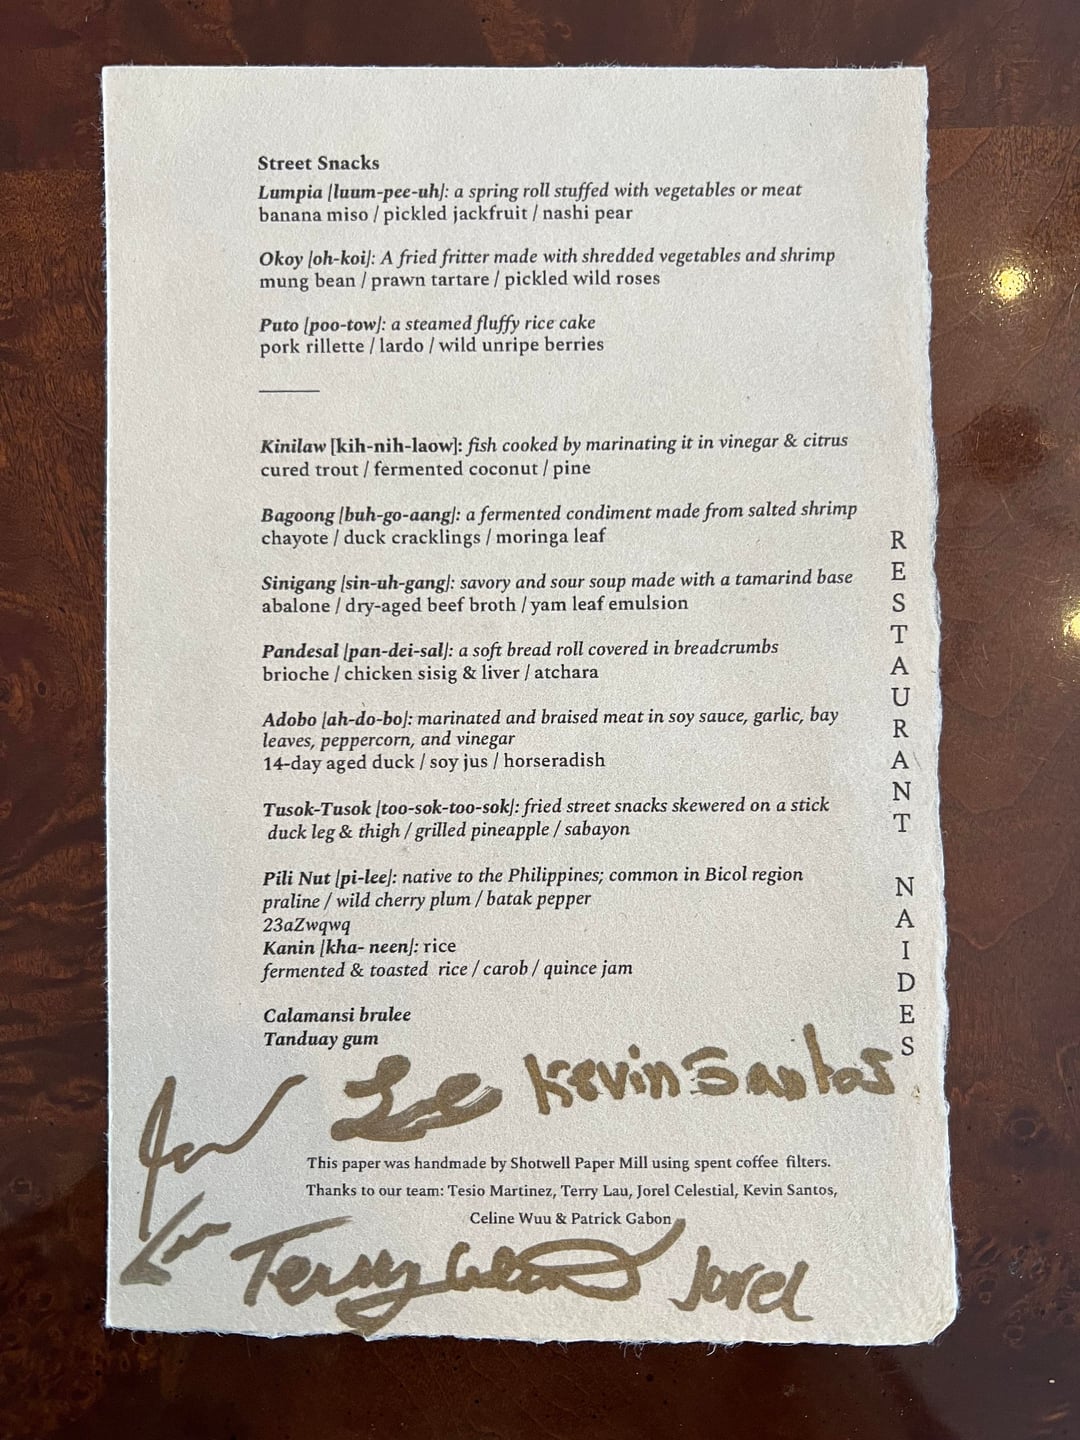 Street Snacks
Lumpia [luum-pee-uh]: a spring roll stuffed with vegetables or meat
banana miso / pickled jackfruit / nashi pear
Okoy [oh-koi]: A fried fritter made with shredded vegetables and shrimp
mung bean / prawn tartare / pickled wild roses
Puto [poo-tow]: a steamed fluffy rice cake
pork rillette / lardo / wild unripe berries
Kinilaw [kih-nih-laow]: fish cooked by marinating it in vinegar & citrus
cured trout / fermented coconut / pine
Bagoong [buh-go-aang]: a fermented condiment made from salted shrimp
chayote / duck cracklings / moringa leaf
Sinigang [sin-uh-gang]: savory and sour soup made with a tamarind base
abalone / dry-aged beef broth / yam leaf emulsion
Pandesal [pan-dei-sal]: a soft bread roll covered in breadcrumbs
brioche / chicken sisig & liver / atchara
Adobo [ah-do-bo]: marinated and braised meat in soy sauce, garlic, bay
leaves, peppercorn, and vinegar
14-day aged duck / soy jus / horseradish
Tusok-Tusok [too-sok-too-sok]: fried street snacks skewered on a stick
duck leg & thigh / grilled pineapple / sabayon
Pili Nut [pi-lee]: native to the Philippines; common in Bicol region
praline / wild cherry plum / batak pepper
23aZwqwq
Kanin [kha- neen]: rice
fermented & toasted rice / carob / quince jam
Calamansi brulee
Tanduay gum
RESTAURANT NAIDES
Kevin Santos
This paper was handmade by Shotwell Paper Mill using spent coffee filters.
Thanks to our team: Tesio Martinez, Terry Lau, Jorel Celestial, Kevin Santos,
Celine Wuu & Patrick Gabon
Terry
Jorel